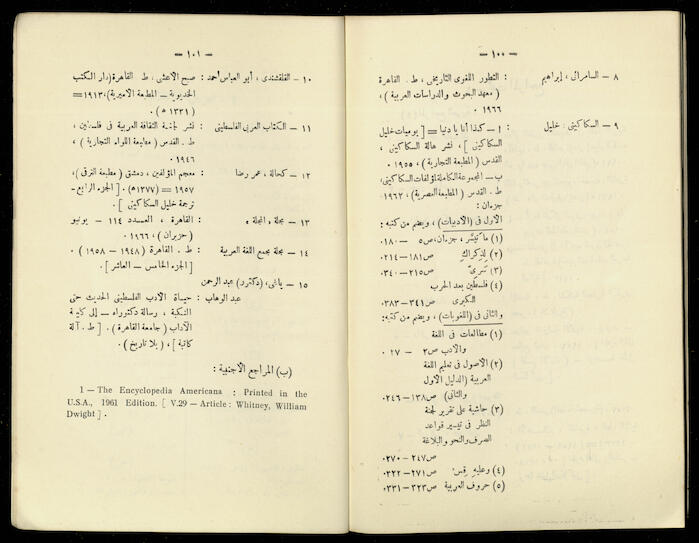 — ١٠٠ —
٨ — السامرائي ، إبراهيم : التطور اللغوى التاريخى ، ط . القاهرة
( معهد البحوث والدراسات العربية ) ،
١٩٦٦ .
٩ — السكاكينى ، خليل : ا — كذا أنا يا دنيا = [ يوميات خليل
السكاكينى ] ، نشر هالة السكاكينى ،
القدس ( المطبعة التجارية ) ، ١٩٥٥ .
ب — المجموعة الكاملة لمؤلفات السكاكينى،
ط . القدس ( المطبعة العصرية ) ١٩٦٢،
جزءان :
الاول فى ( الادبيات ) ، ويضم من كتبه :
(١) ما تيسّر ، جزءان، ص٥ — ١٨٠ .
(٢) لِذكراكِ ص١٨١—٢١٤ .
(٣) سَرِىّ ص٢١٥—٣٤٠ .
(٤) فلسطين بعد الحرب
الكبرى ص٣٤١—٣٨٣ .
والثانى فى ( اللغويات ) ، ويضم من كتبه:
(١) مطالعات فى اللغة
والادب ص٣ — ٢٧ .
(٢) الاصول فى تعليم اللغة
العربية ( الدليل الاول
والثانى ) ص١٣٨—٢٤٦ .
(٣) حاشية على تقرير لجنة
النظر فى تيسير قواعد
الصرف والنحو والبلاغة
ص٢٤٧—٢٧٠ .
(٤) وعليه قِس ص٢٧١—٣٢٢ .
(٥) حروف العربية ص٣٢٣—٣٣١ .
— ١٠١ —
١٠ — القلقشندى ، أبو العباس أحمد : صبح الاعشى ، ط . القاهرة (دار الكتب
الخديوية — المطبعة الاميرية)، ١٩١٣ =
( ١٣٣١ هـ ) .
١١ — الكتاب العربى الفلسطينى : نشر لجنة الثقافة العربية فى فلسطين ،
ط . القدس ( مطبعة اللواء التجارية ) ،
١٩٤٦
١٢ — كحالة ، عمر رضا : معجم المؤلفين ، دمشق ( مطبعة الترقى ) ،
١٩٥٧ = (١٣٧٧هـ) . [ الجزء الرابع—
ترجمة خليل السكاكينى ] .
١٣ — مجلة « المجلة » : القاهرة ، العدد ١١٤ — يونيو
( حزيران ) ، ١٩٦٦ .
١٤ — مجلة مجمع اللغة العربية : ط . القاهرة ( ١٩٤٨ — ١٩٥٨ ) .
[ الجزء الخامس — العاشر ] .
١٥ — ياغى، (دكتور) عبد الرحمن
عبد الوهاب : حياة الادب الفلسطينى الحديث حتى
النكبة ، رسالة دكتوراه — إلى كلية
الآداب ( جامعة القاهرة ) . [ ط . آلة
كاتبة ] ، ( بلا تاريخ ) .
(ب) المراجع الاجنبية :
1 — The Encyclopedia Americana : Printed in the
U.S.A., 1961 Edition. [ V.29 — Article : Whitney, William
Dwight ] .